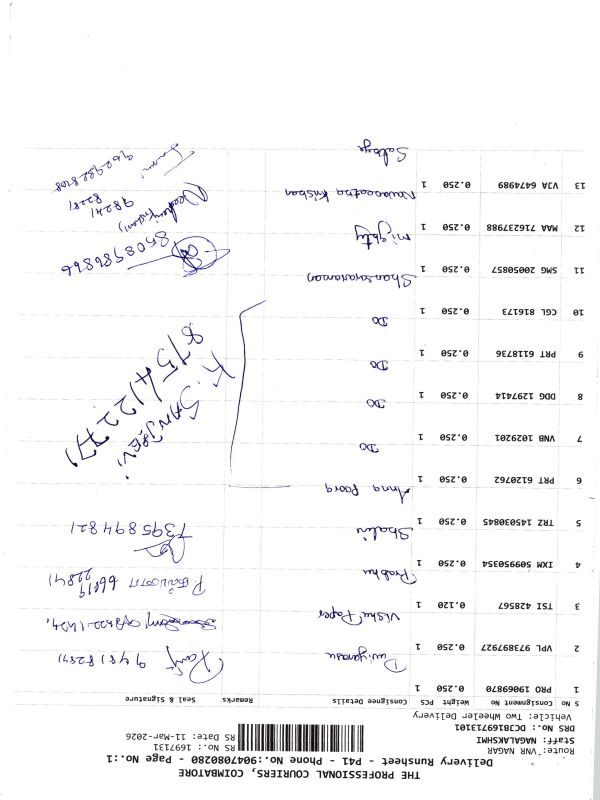 THE PROFESSIONAL COURIERS, COIMBATORE
Delivery Runsheet - P41 - Phone No.:9047080280 - Page No.:1
Route: VNR NAGAR
Staff: NAGALAKSHMI
DRS No.: DCJB16971310
Vehicle: Two Wheeler Delivery
RS No.: 1697131
RS Date: 11-Mar-2026
S No Consignment No Weight PCS Consignee Details Remarks Seal & Signature
1 PRO 19069870 0.250 1
2 VPL 973897927 0.250 1 Vishu Paper
3 TSI 428567 0.120 1 Prabhu
4 IXM 509950354 0.250 1 Shalini 7395894821
5 TRZ 145030845 0.250 1 Anna Poorq
6 PRT 6120762 0.250 1 Do
7 VNB 1029201 0.250 1 Do K. SANJEEVI
8 DDG 1297414 0.250 1 Do
9 PRT 6118736 0.250 1 Do
10 CGL 816173 0.250 1 Shansmaraman
11 SMG 20050857 0.250 1 Mighty 8508986866
12 MAA 716237988 0.250 1 Navaneetha Krishan
13 VJA 6474989 0.250 1 Sathya